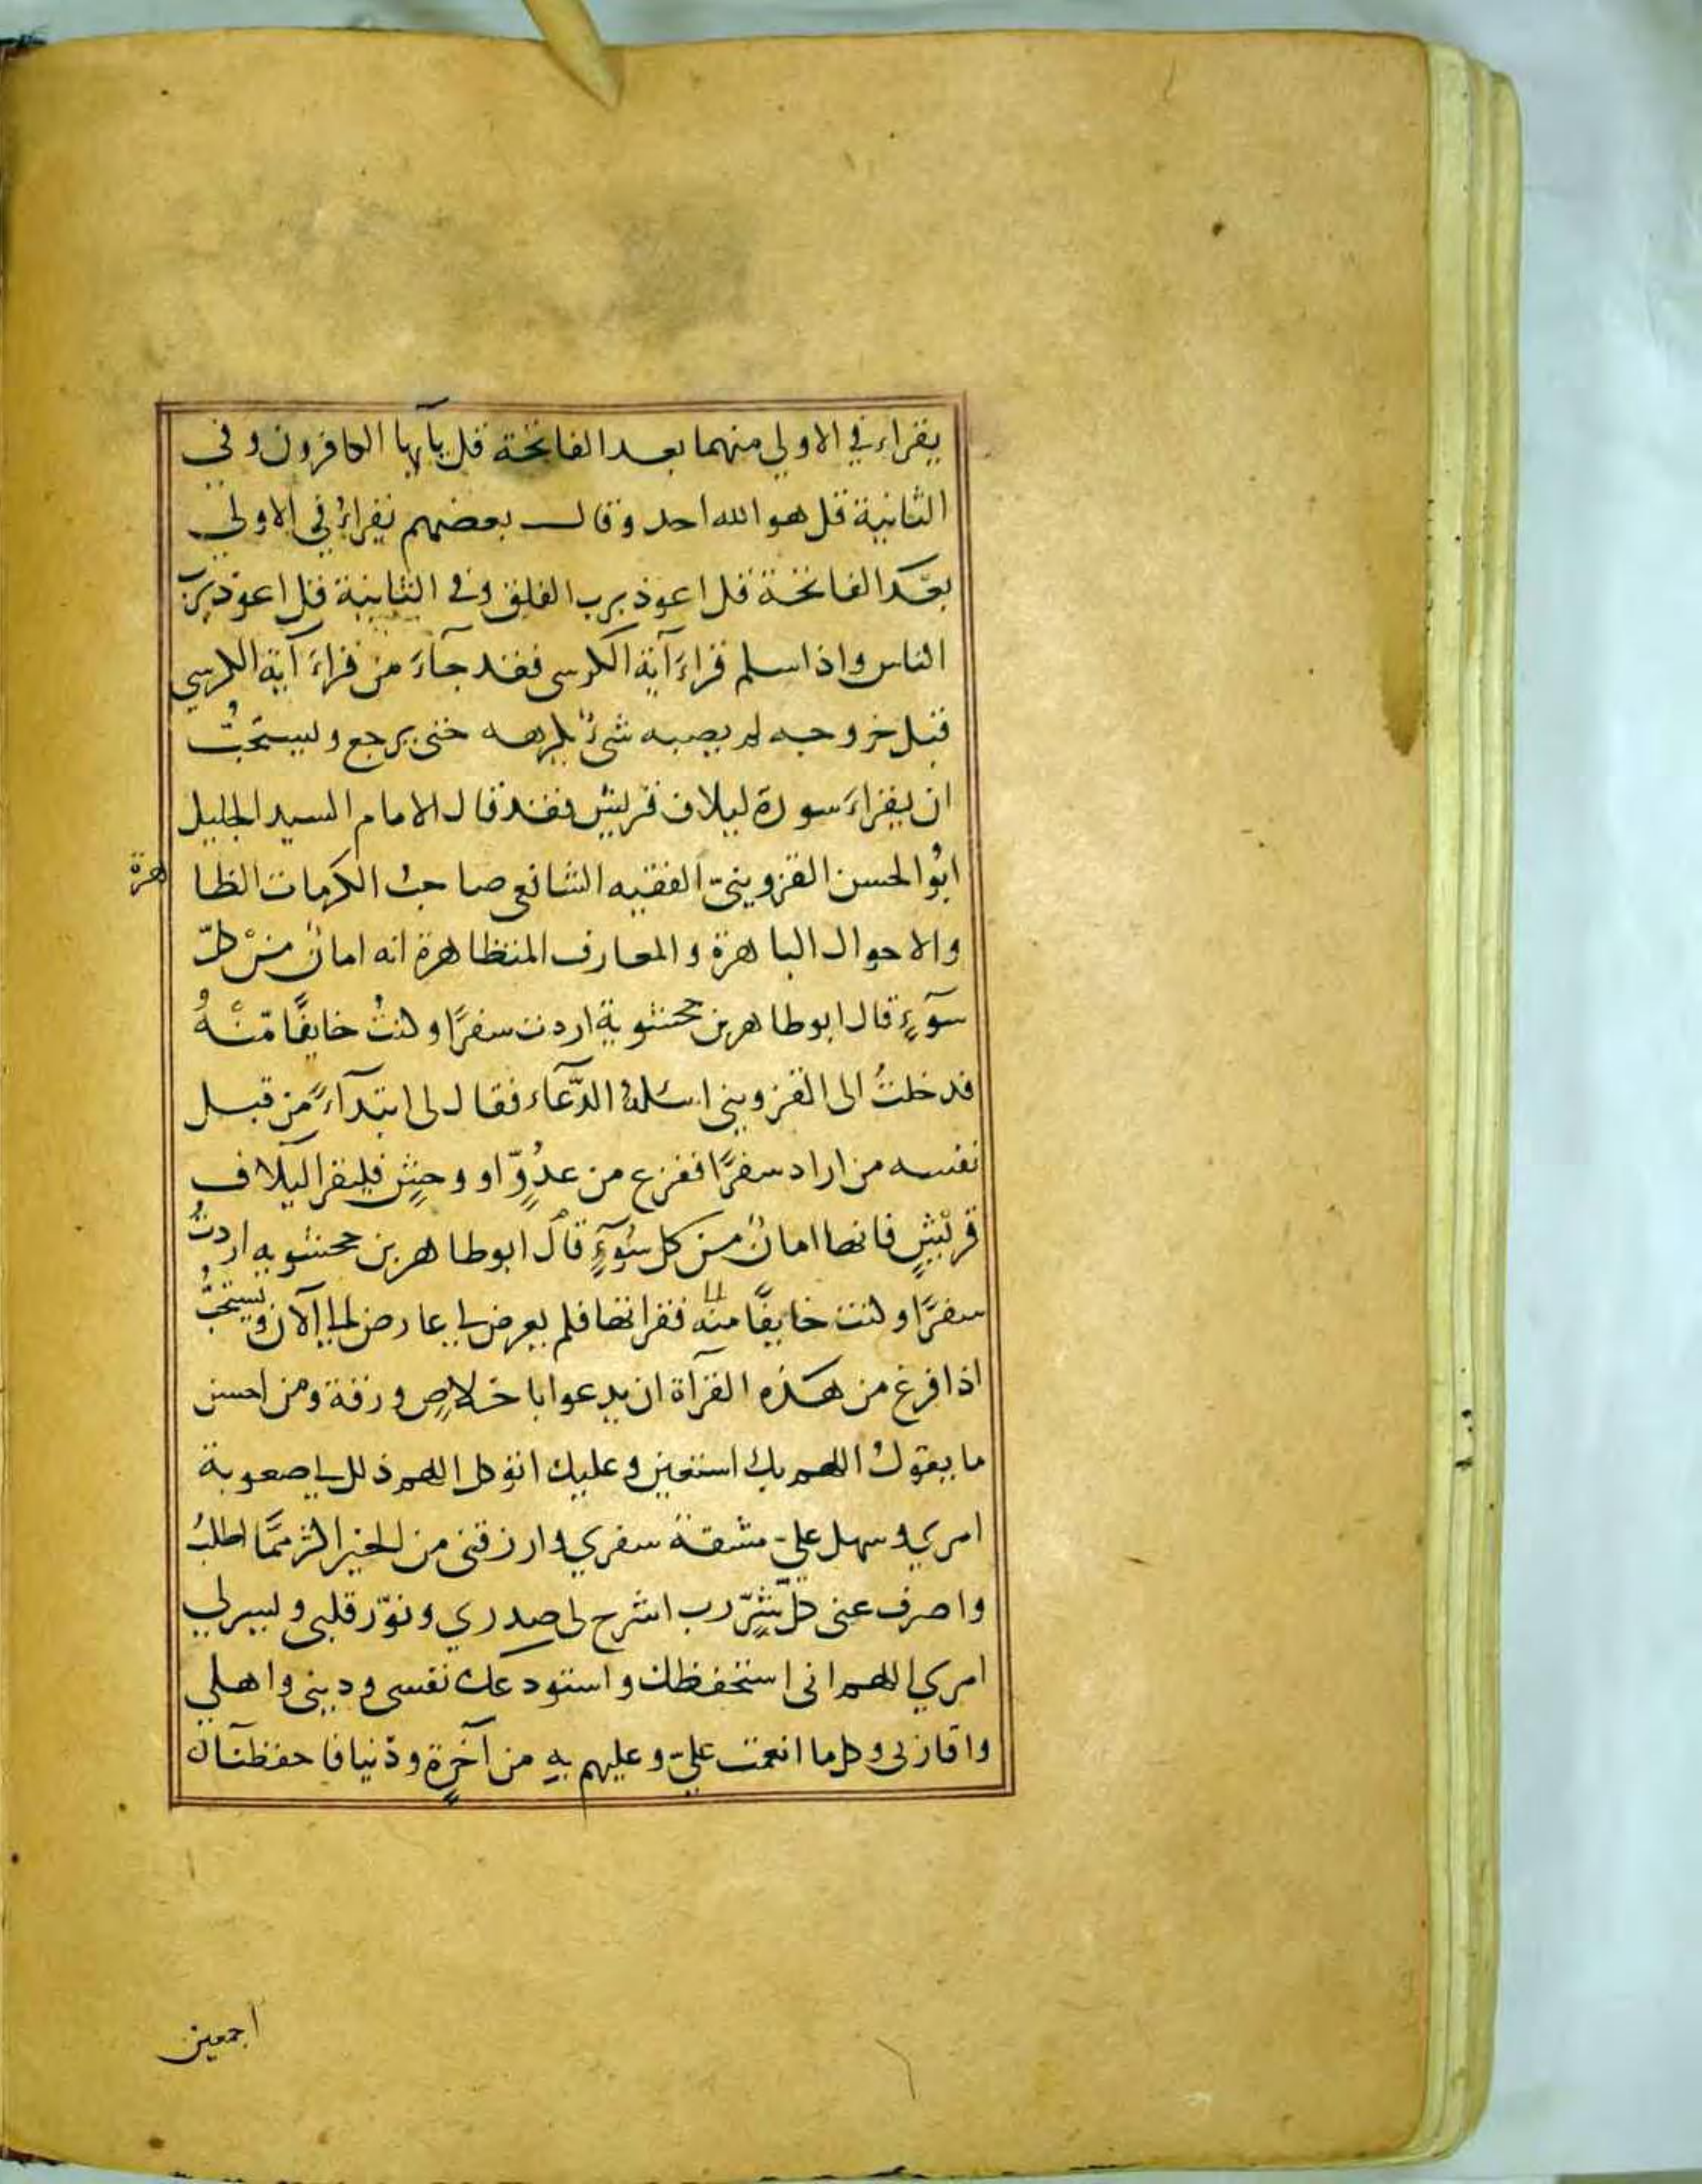 يقراء في الاولي منهما بعد الفاتحة قل يآيها الكافرون وفي
الثانية قل هو الله احد وقال بعضهم يقراءُ في الاولي
بعد الفاتحة قل اعوذ برب الفلق وفي الثانية قل اعوذ برب
الناس واذا سلم قراءَ آية الكرسي فقد جآءَ من قراءَ آية الكرسي
قبل خروجه لم يصبه شئٌ يكرهه حتى يرجع ويستحبُّ
ان يقراءَ سورة ليلاف قريش فقد قال الامام السيد الجليل
ابُو الحسن القزوينيّ الفقيه الشافعي صاحبُ الكرمات الظا هرة
والاحوال الباهرة والمعارف المتظاهرة انه امانٌ منْ كلّ
سوٓءٍ قال ابوطاهر بن جحشوية اردت سفرًا وكنتُ خايفًا مّنْهُ
فدخلتُ الى القزويني اسئلهُ الدّعآء فقال لى ابتدآءً من قبل
نفسه من اراد سفرًا ففزع من عدُوٍّ او وحشٍ فليقرا ليلاف
قريْشٍ فانها امانٌ من كل سُوٓءٍ قال ابوطاهر بن جحشويه اردتُ
سفرًا وكنت خايفًا منه فقراتها فلم يعرض لي عارض لي الآن ويستحبُّ
اذا فرغ من هذه القرآة ان يدعوا باخلاصٍ ورقة ومن احسن
ما يقولُ اللهم بك استعين وعليك اتوكل اللهم ذلل لي صعوبة
امري وسهل عليّ مشقة سفري وارزقنى من الخير اكثر ممَّا اطلبُ
واصرف عنى كلّ شرٍّ رب اشرح لى صدري ونوّر قلبي ويسر لي
امري اللهم انى استحفظك واستودعك نفسى وديني واهلي
واقاربى وكل ما انعمت عليّ وعليهم بهِ من آخرةٍ ودُنيا فاحفظنآ
اجمعين